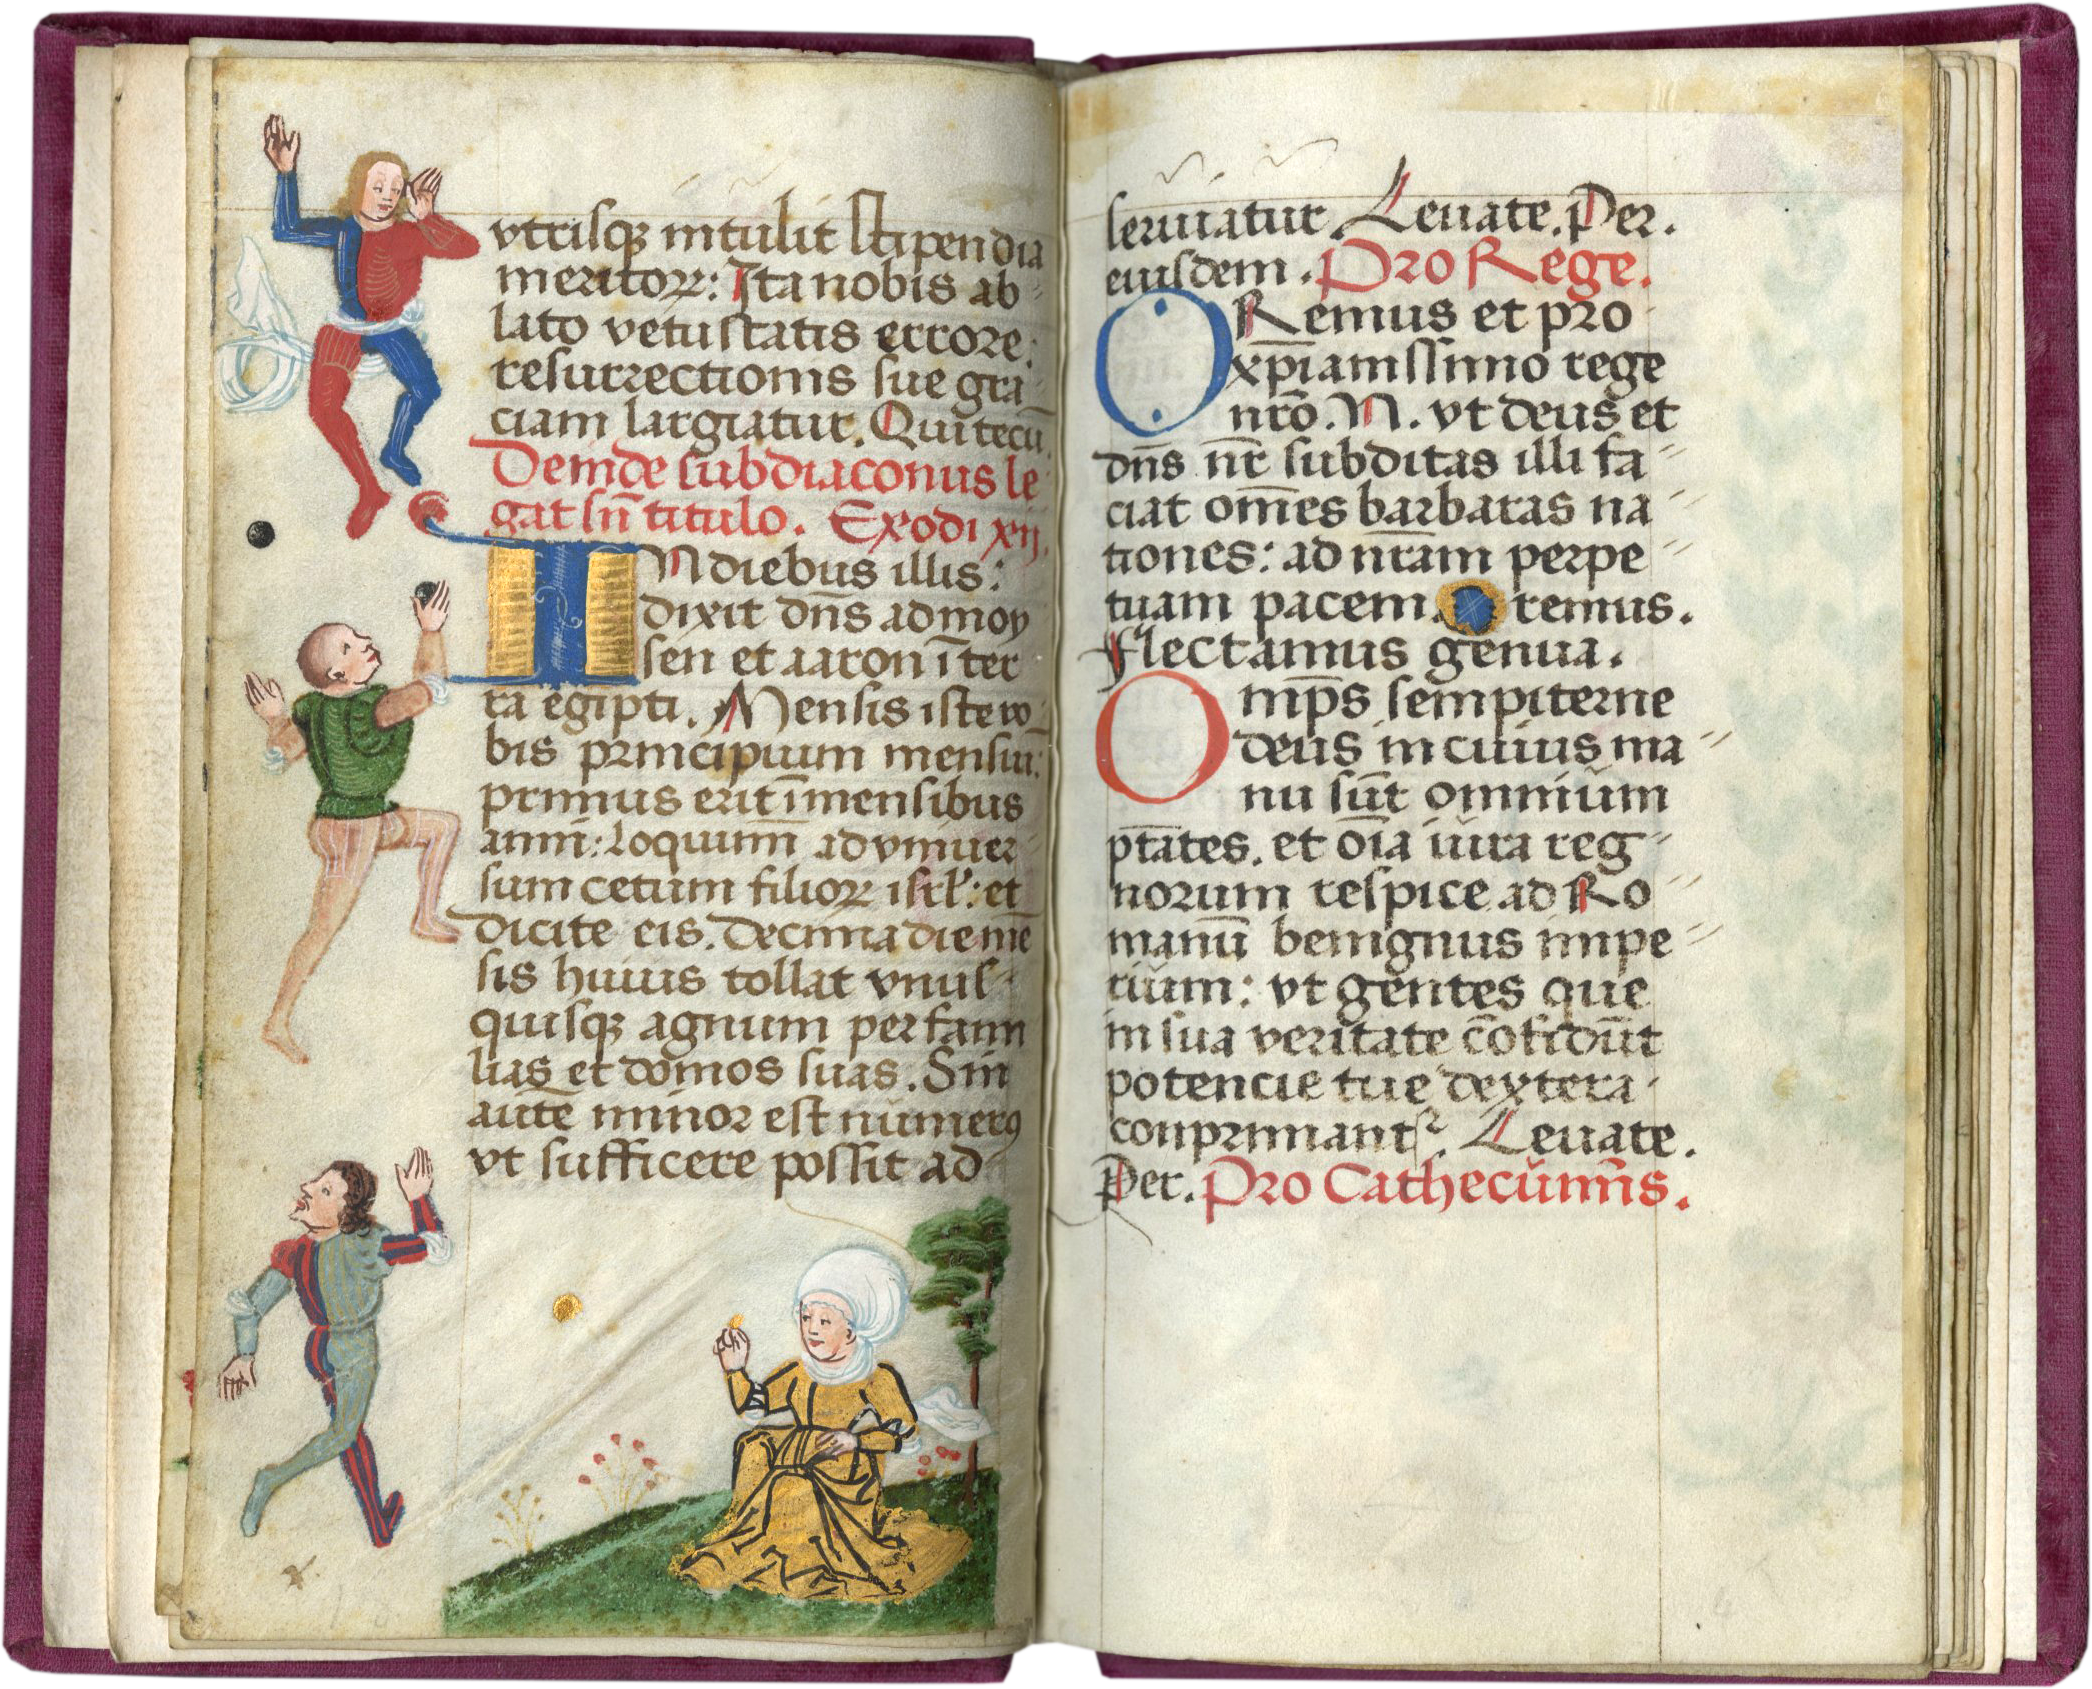 vtrisqꝫ intulit stipendia
meritoꝝ: Ita nobis ab
lato vetustatis errore:
resurrectionis sue gra
ciam largiatur. Qui tecū
Deinde subdiaconus le
gat sn̄ titulo. Exodi xij.
IN diebus illis:
dixit dn̄s ad moy
sen et aaron ī ter
ra egipti. Mensis iste vo
bis principium mensiu:
primus erit ī mensibus
anni: loquimī ad vniuer
sum cetum filioꝝ isrl': et
dicite eis. Decima die mē
sis huius tollat vnus
quisqꝫ agnum per fami
lias et domos suas. Sin
autē minor est numerꝯ
vt sufficere possit ad
seruiatur. Leuate. Per.
eiusdem. Pro Rege.
ORemus et pro
xp̄ianissimo rege
nr̄o. N. vt deus et
dn̄s nr̄ subditas illi fa
ciat om̄es barbaras na
tiones: ad nr̄am perpe
tuam pacem. Oremus.
Flectamus genua.
Omp̄s sempiterne
deus in cuius ma
nu sūt omnium
pt̄ates. et oīa iura reg
norum respice ad Ro
manū benignus impe
rium: vt gentes que
in sua veritate cōfidūt
potencie tue dextera
conprimant᷑. Leuate.
Per. Pro Cathecumīs.